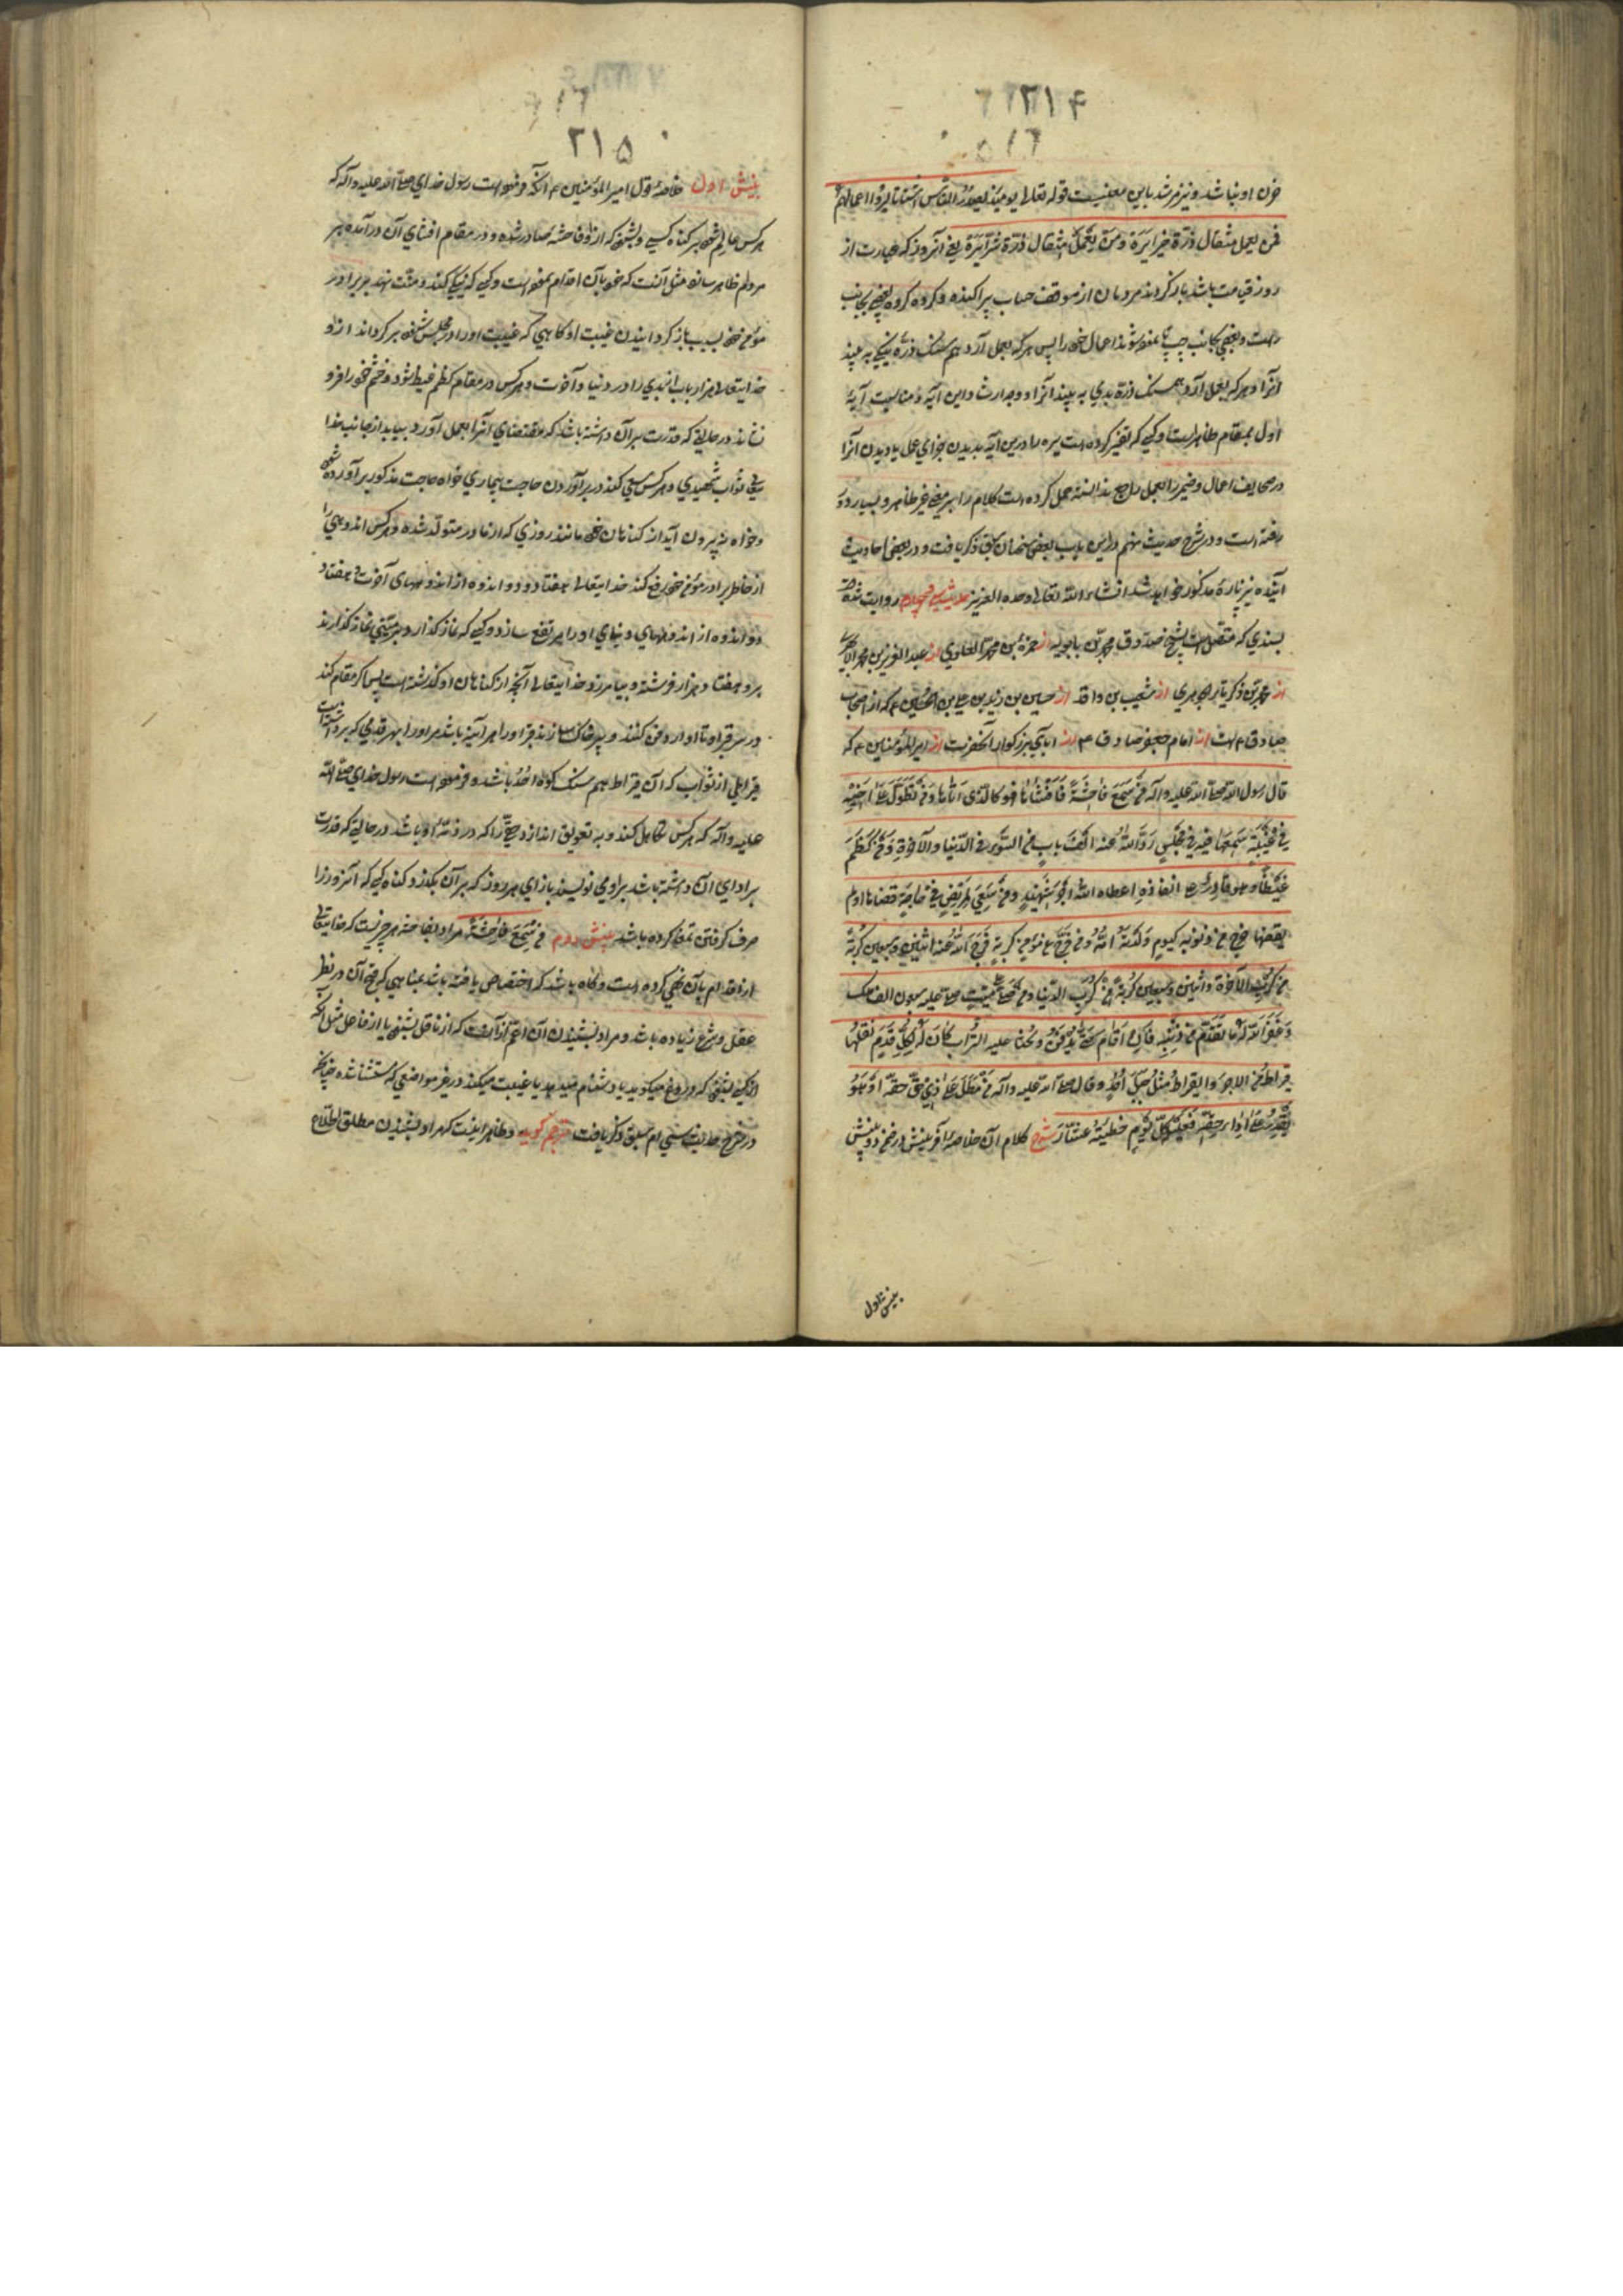 ۲۱۴
۵۱۶
خزن او نباشد و نیز مرشد باین معنیست قوله تعالی یومئذ یصدر الناس اشتاتا لیروا اعمالهم
فمن یعمل مثقال ذرة خیرا یره و من یعمل مثقال ذرة شرا یره یعنی آنروز که عبارت از
روز قیامت باشد باز کردند مردمان از موقف حساب پراکنده و کروه کروه بعضی بجانب
راست و بعضی بجانب چپ تا نموده شوند اعمال خود را پس هر که بعمل آرد هم سنک ذره نیکی به بیند
آنرا و هر که بعمل آرد همسنک ذرة بدی به بیند آنرا و وجه ارشاد این آیه و مناسبت آیهٔ
اول بمقام ظاهر است و کسی که تفسیر کرده است یره را درین آیه بدیدن جزای عمل یا دیدن آنرا
در صحایف اعمال و ضمیر را بعمل راجع نداشته حمل کرده است کلام را بر معنی غیر ظاهر و بسیار دور
رفته است و در شرح حدیث نهم در این باب بعضی سخنان سبق ذکر یافت و در بعضی احادیث
آینده نیز پارهٔ مذکور خواهد شد انشاء الله تعالی وحده العزیز حدیث سی و چهارم روایت شده
بسندی که متصل است بشیخ صدوق محمد بن بابویه از حمزة بن محمد العلوی از عبد العزیز بن محمد الابهری
از محمد بن ذکریا الجوهری از شعیب بن واقد از حسین بن زید بن علی بن الحسین ع که از اصحاب
صادق ع است از امام جعفر صادق ع از آبای بزرکوار آنحضرت از امیرالمؤمنین ع که
قال رسول الله صلی الله علیه و آله من سمع فاحشة فافشاها فهو کالذی اتاها و من تطول علی اخیه
فی غیبة سمعها فیه فی مجلس رد الله عنه الف باب من السوء فی الدنیا و الآخرة و من کظم
غیظا و هو قادر علی انفاذه اعطاه الله اجر شهید و من سعی لمریض فی حاجة قضاها او لم
یقضها خرج من ذنوبه کیوم ولدته امه و من فرج عن مؤمن کربة فرج الله عنه اثنین و سبعین کربة
من کرب الآخرة و اثنین و سبعین کربة من کرب الدنیا و من صلی علی میت صلی علیه سبعون الف ملک
و غفر الله له ما تقدم من ذنبه فان اقام حتی یدفن و یحثا علیه التراب کان له بکل قدم نقلها
قیراط من الاجر و القیراط مثل جبل احد و قال صلی الله علیه و آله من مطل علی ذی حق حقه و هو
یقدر علی اداء حقه فعلیه کل یوم خطیئة عشار شرح کلام آن خلاصه آفرینش در ضمن دو بینش
بینش اول
۲۱۵
بینش اول خلاصهٔ قول امیر المؤمنین ع آنکه فرموده است رسول خدای صلی الله علیه و آله که
هر کس عالم شود بر کناه کسی و بشنود که از او فاحشهٔ صادر شده و در مقام افشای آن درآمده بر
مردم ظاهر سازد مثل آنست که خود بآن اقدام نموده است و کسی که نیکی کند و منت نهد بر برادر
مؤمن خود بسبب باز کردانیدن غیبت او کاهی که غیبت او را در مجلس شنود بر کرداند از او
خدایتعالی هزار باب از بدی را در دنیا و آخرت و هر کس در مقام کظم غیظ شود و خشم خود را فرو
نشاند در حالتی که قدرت بر آن داشته باشد که مقتضای آنرا بعمل آورد بیابد از جانب خدا
یتعالی ثواب شهیدی و هر کس سعی کند در برآوردن حاجت بیماری خواه حاجت مذکور برآورده شود
و خواه نه بیرون آید از کناهان خود مانند روزی که از مادر متولد شده و هر کس اندوهی را
از خاطر برادر مؤمن خود رفع کند خدایتعالی هفتاد و دو اندوه از اندوههای آخرت و هفتاد و
دو اندوه از اندوههای دنیای او را مرتفع سازد و کسی که نماز کذارد بر میتی نماز کذارند
برو هفتاد هزار فرشته و بیامرزد خدایتعالی آنچه از کناهان او کذشته است پس اکر مقام کند
در سر قبر او تا او را دفن کنند و پر خاک سازند قبر او را هر آینه باشد مر او را بهر قدمی که برداشته است
قیراطی از ثواب که آن قیراط هم سنک کوه احد باشد و فرموده است رسول خدای صلی الله
علیه و آله که هر کس تکاهل کند و به تعویق اندازد حقی را که در ذمهٔ او باشد در حالتی که قدرت
بر ادای آن داشته باشد بر او می نویسند بازای هر روز که بر آن بکذرد کناه کسی که آنروز را
صرف کرفتن تمغا کرده باشد بینش دوم من سمع فاحشة مراد بفاحشه هر چیزیست که خدایتعالی
از اقدام بآن نهی کرده است و کاه باشد که اختصاص یافته باشد بمناهی که قبح آن در نظر
عقل و شرع زیاده باشد و مراد بشنیدن آن اعم از آنست که از ناقل بشنود یا از فاعل مثل آنکه
از کسی بشنود که دروغ میکوید یا دشنام میدهد یا غیبت میکند در غیر مواضعی که مستثنا شده چنانچه
در شرح حدیث سی ام سبق ذکر یافت مترجم کوید و ظاهر اینست که مراد بشنیدن مطلق اطلاع